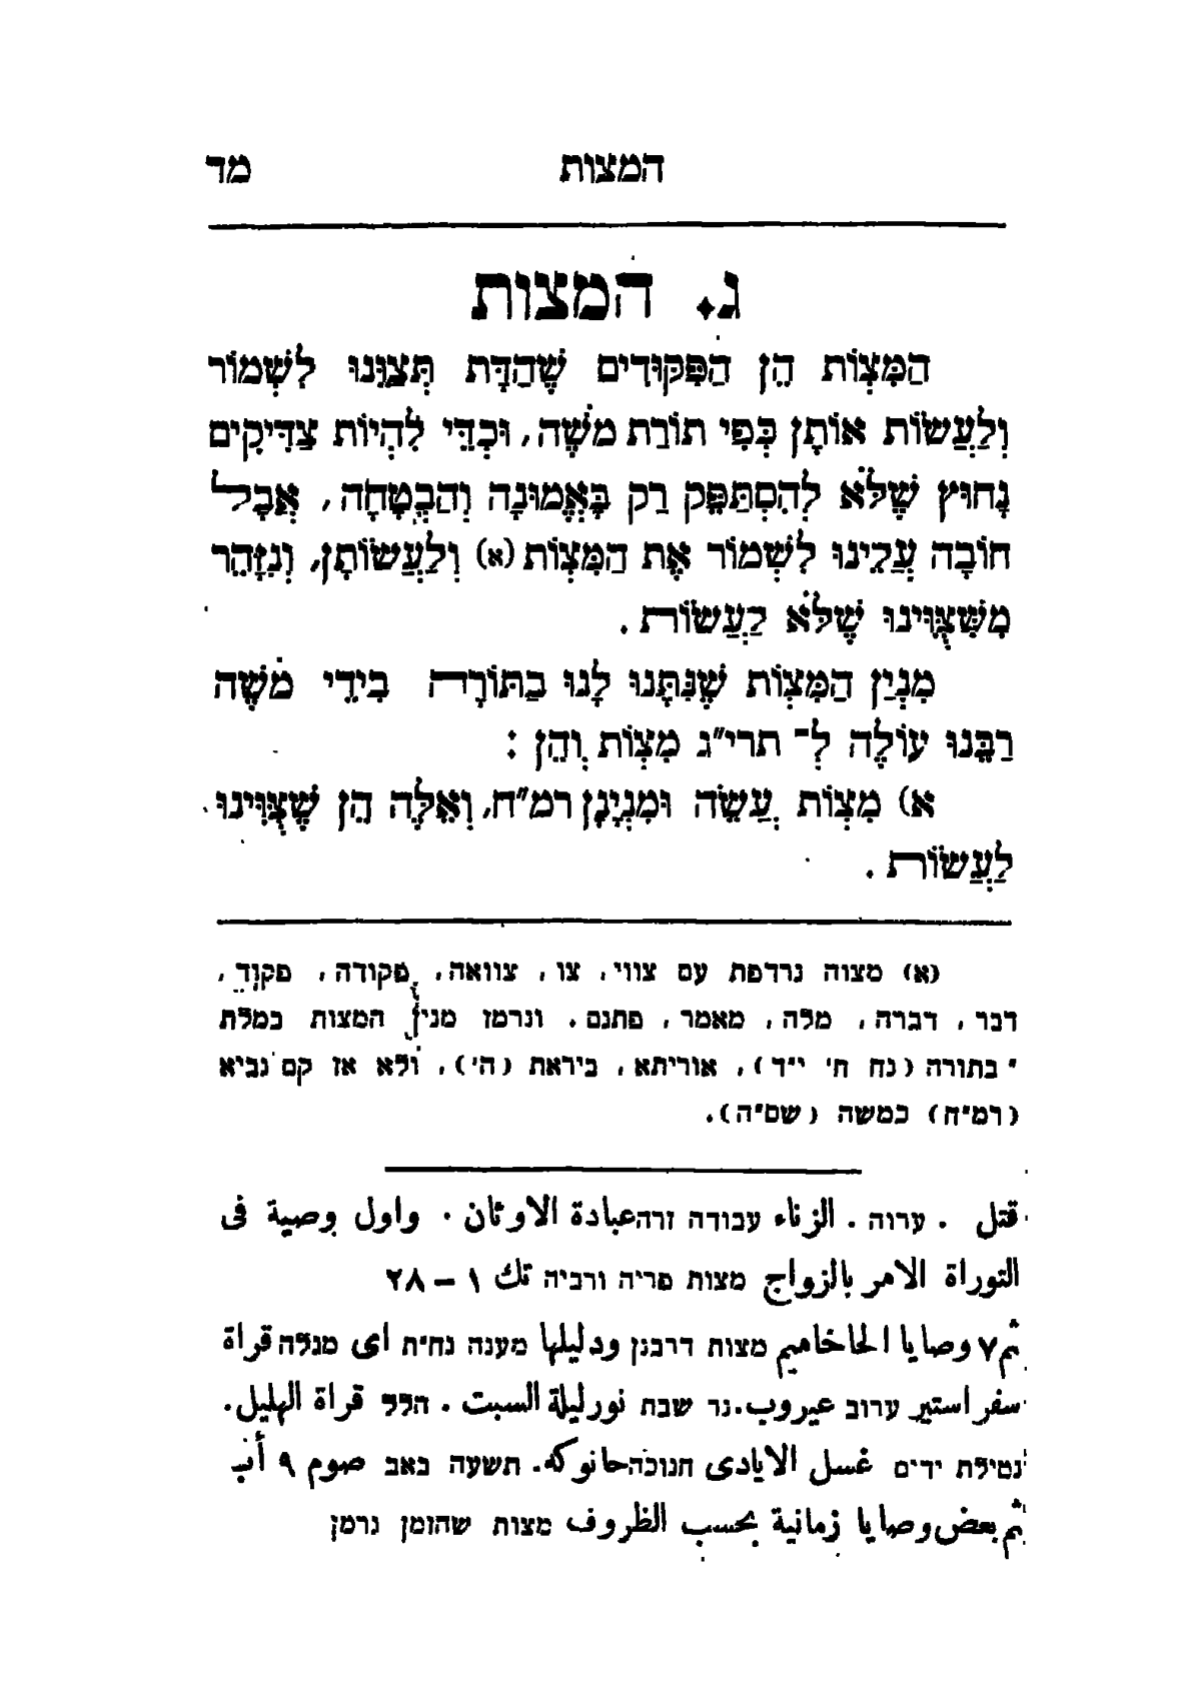 המצות מד
ג. המצות
הַמִּצְוֹת הֵן הַפִּקּוּדִים שֶׁהַדָּת תְּצַוֵּנוּ לִשְׁמוֹר
וְלַעֲשׂוֹת אוֹתָן כְּפִי תוֹרַת מֹשֶׁה, וּכְדֵי לִהְיוֹת צַדִּיקִים
נָחוּץ שֶׁלֹּא לְהִסְתַּפֵּק רַק בֶּאֱמוּנָה וְהַבְטָחָה, אֲבָל
חוֹבָה עָלֵינוּ לִשְׁמוֹר אֶת הַמִּצְוֹת (א) וְלַעֲשׂוֹתָן, וְנִזָּהֵר
מִשֶּׁצֻּוִּינוּ שֶׁלֹּא לַעֲשׂוֹת.
מִנְיַן הַמִּצְוֹת שֶׁנִּתְּנוּ לָנוּ בַתּוֹרָה בִידֵי מֹשֶׁה
רַבֵּנוּ עוֹלֶה לְ־ תרי״ג מִצְוֹת וְהֵן :
א) מִצְוֹת עֲשֵׂה וּמִנְיָנָן רמ״ח, וְאֵלֶּה הֵן שֶׁצֻּוִּינוּ
לַעֲשׂוֹת.
(א) מצוה נרדפת עם צווי, צו, צוואה, פקודה, פקוד,
דבר, דברה, מלה, מאמר, פתגם. ונרמז מנין המצות במלת
" בתורה (נח ח' י"ד), אוריתא, ביראת (ה'), ולא אז קם נביא
(רמ"ח) כמשה (שס"ה).
قتل . ערוה . الزناء עבודה זרה عبادة الاوثان . واول وصية فى
التوراة الامر بالزواج מצות פריה ורביה تك ١ – ٢٨
ثم ٧ وصايا الحاخاميم מצות דרבנן ودليلها מענה נח"ת اى מגלה قراة
سفر استير ערוב عيروب. נר שבת نور ليلة السبت . הלל قراة الهليل.
נטילת ידים غسل الايادى חנוכה حانوكه. תשעה באב صوم ٩ أب
ثم بعض وصايا زمانية بحسب الظروف מצות שהזמן גרמן